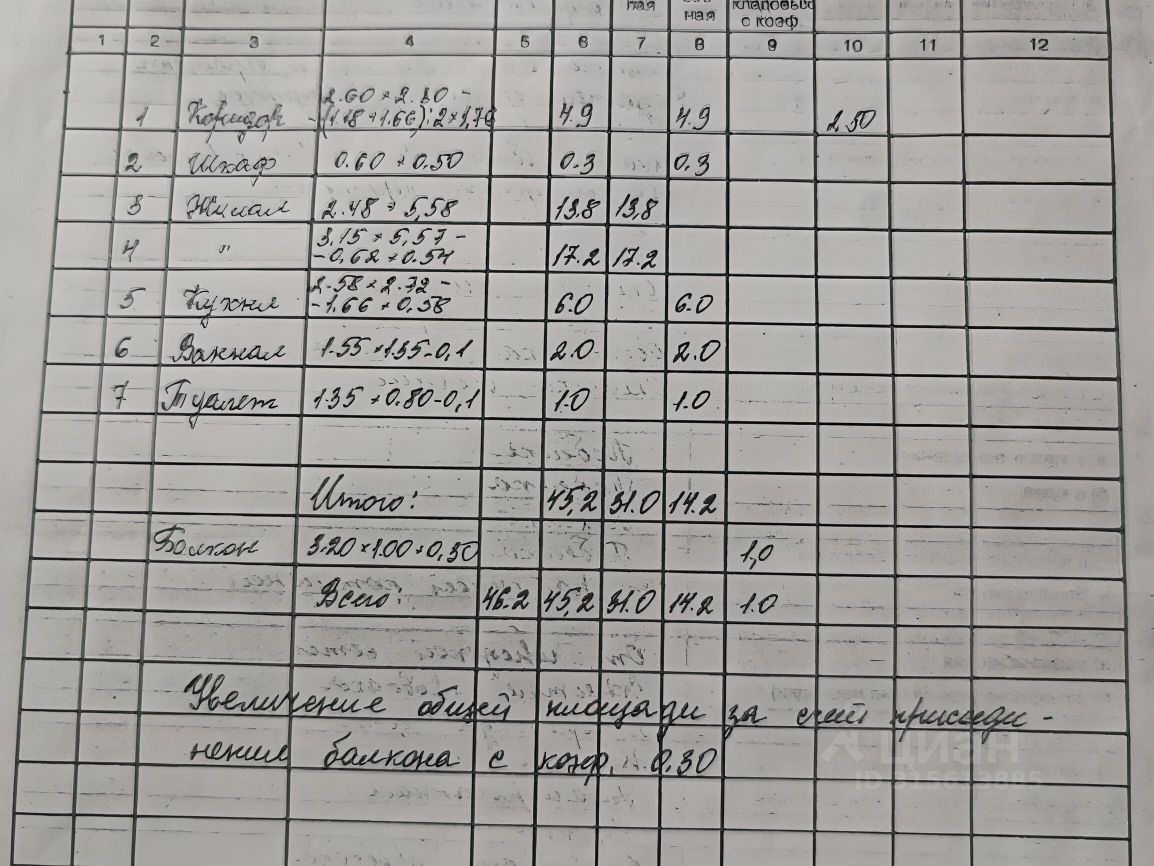 ная
ная
с коэф
1 2 3 4 5 6 7 8 9 10 11 12
1 Коридор 2.60 × 2.80 - 4.9 4.9 2.50
-(1.18+1.66):2×1,76
2 Шкаф 0.60 × 0.50 0.3 0.3
3 Жилая 2.48 × 5,58 13.8 13,8
4 " 3.15 × 5,57 - 17.2 17.2
-0,62 × 0.54
5 Кухня 2.58 × 2.72 - 6.0 6.0
-1.66 × 0,58
6 Ванная 1.55 × 1.35-0,1 2.0 2.0
7 Туалет 1.35 × 0.80-0,1 1.0 1.0
Итого: 45,2 31.0 14.2
Балкон 3.20×1.00×0,30 1,0
Всего: 46.2 45,2 31.0 14.2 1.0
Увеличение общей площади за счет присоеди-
нения балкона с коэф. 0.30
циан